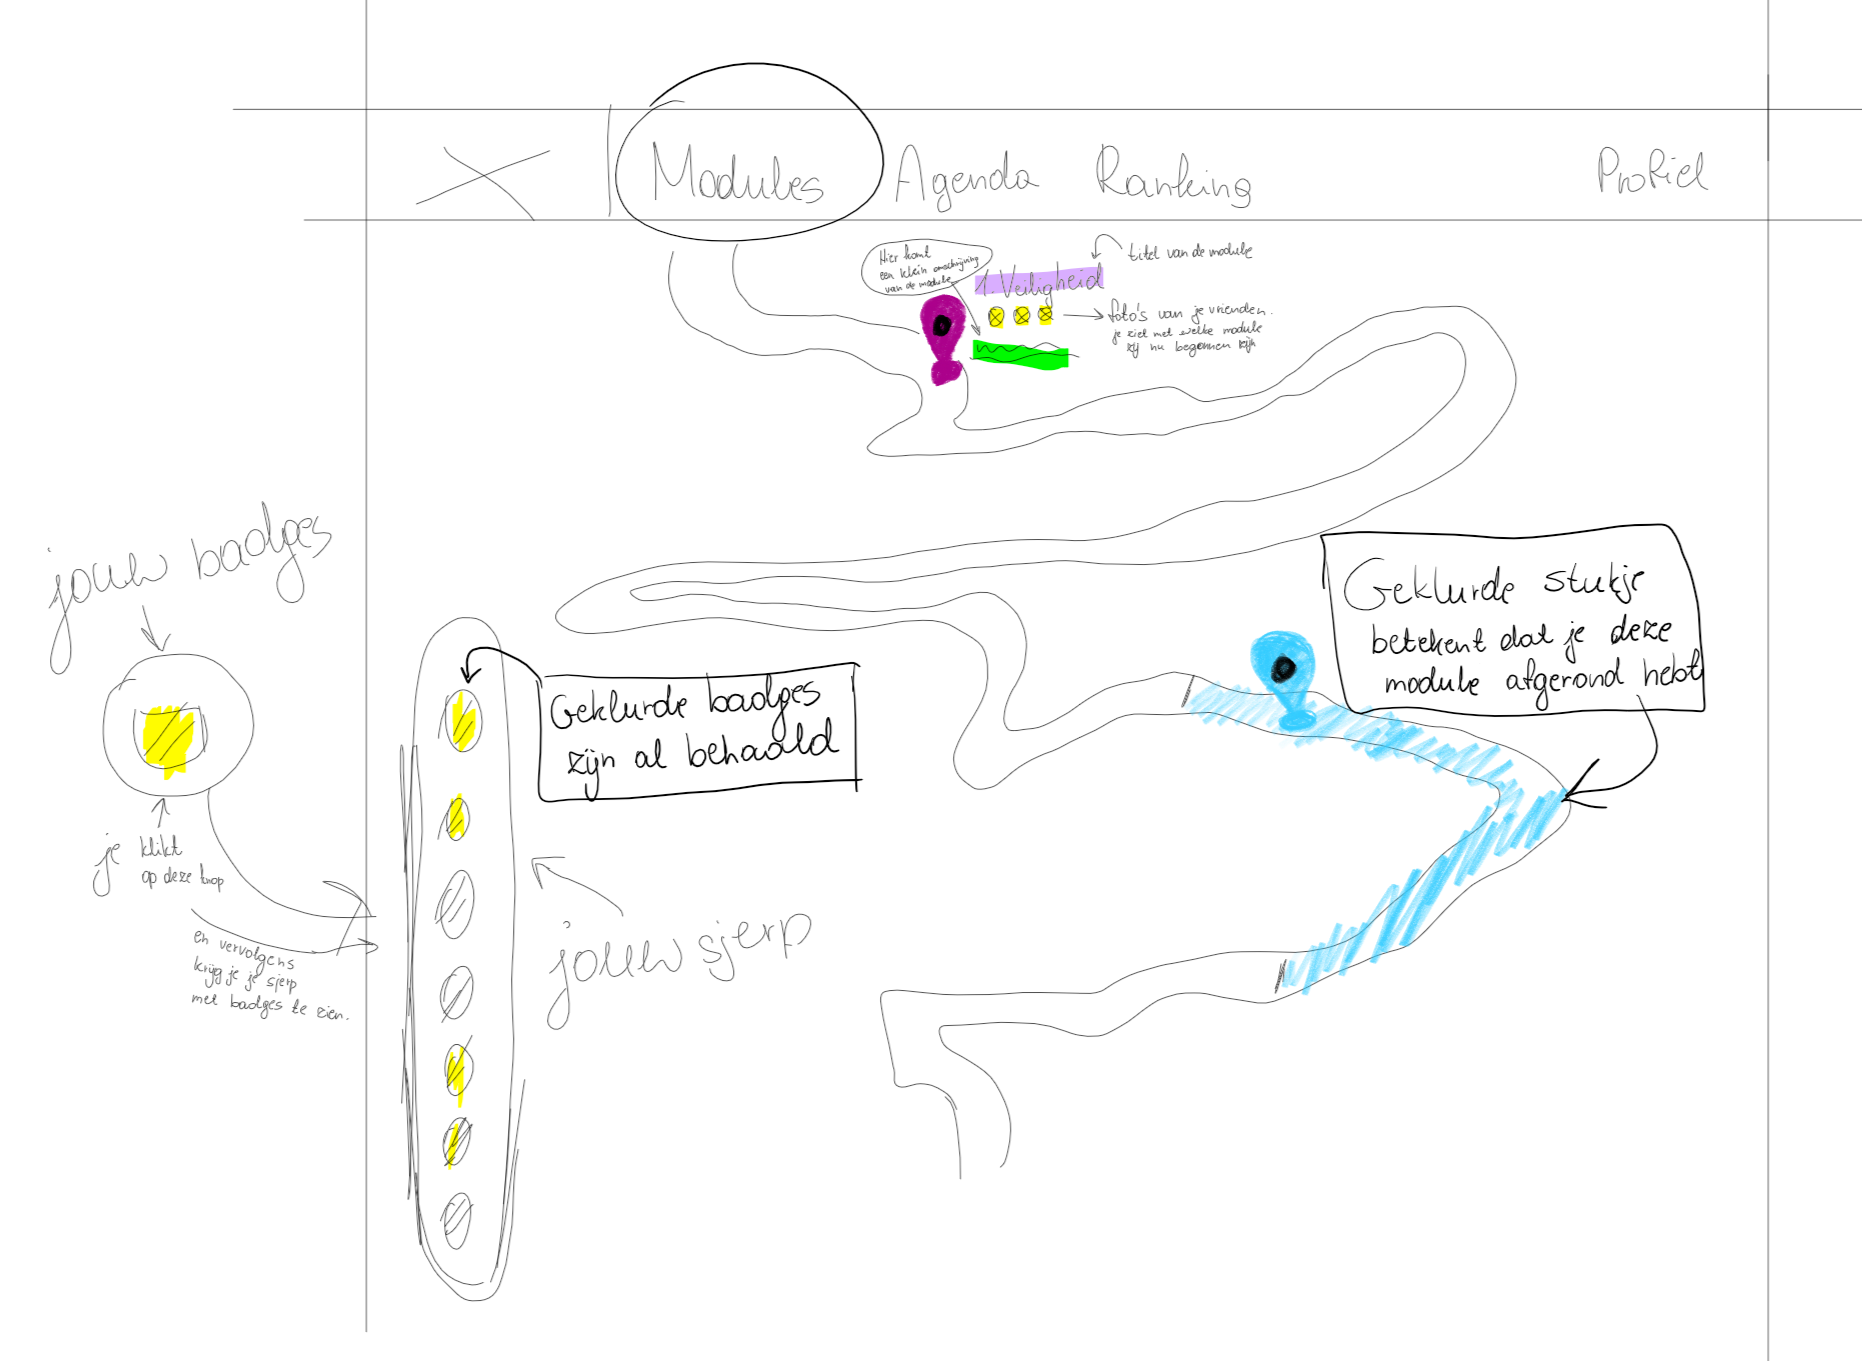 Modules
Agenda
Ranking
Profiel
Hier komt
een klein omschrijving
van de module
1. Veiligheid
titel van de module
foto's van je vrienden.
je ziet met welke module
zij nu begonnen zijn
jouw badges
je klikt
op deze knop
en vervolgens
krijg je je sjerp
met badges te zien.
Geklurde badges
zijn al behaald
jouw sjerp
Geklurde stukje
betekent dat je deze
module afgerond hebt